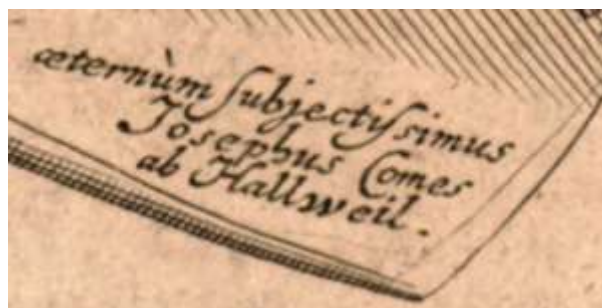 æternùm subjectissimus
Josephus Comes
ab Hallweil.